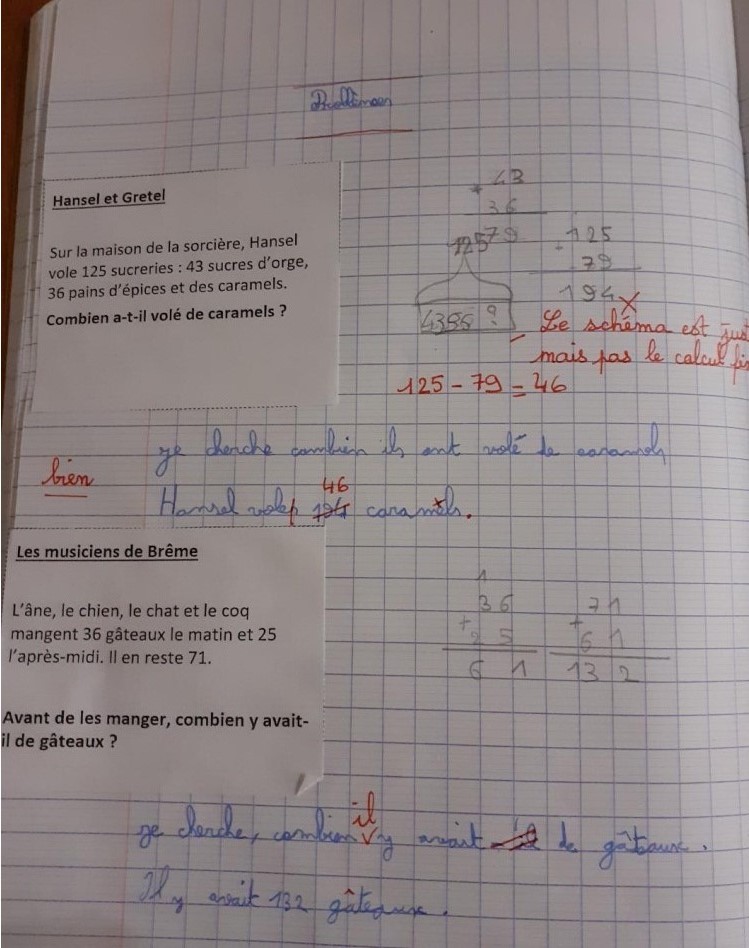 Problèmes
Hansel et Gretel
Sur la maison de la sorcière, Hansel
vole 125 sucreries : 43 sucres d'orge,
36 pains d'épices et des caramels.
Combien a-t-il volé de caramels ?
43
+
36
79
125
125
-
79
194 X
?
Le schéma est jus
mais pas le calcul
125 - 79 = 46
bien
je cherche combien ils ont volé de caramels
46
Hansel 194 caramels.
Les musiciens de Brême
L'âne, le chien, le chat et le coq
mangent 36 gâteaux le matin et 25
l'après-midi. Il en reste 71.
Avant de les manger, combien y avait-
il de gâteaux ?
1
36
+
25
61
71
+
61
132
il
je cherche, combien y avait de gâteaux.
Il y avait 132 gâteaux.